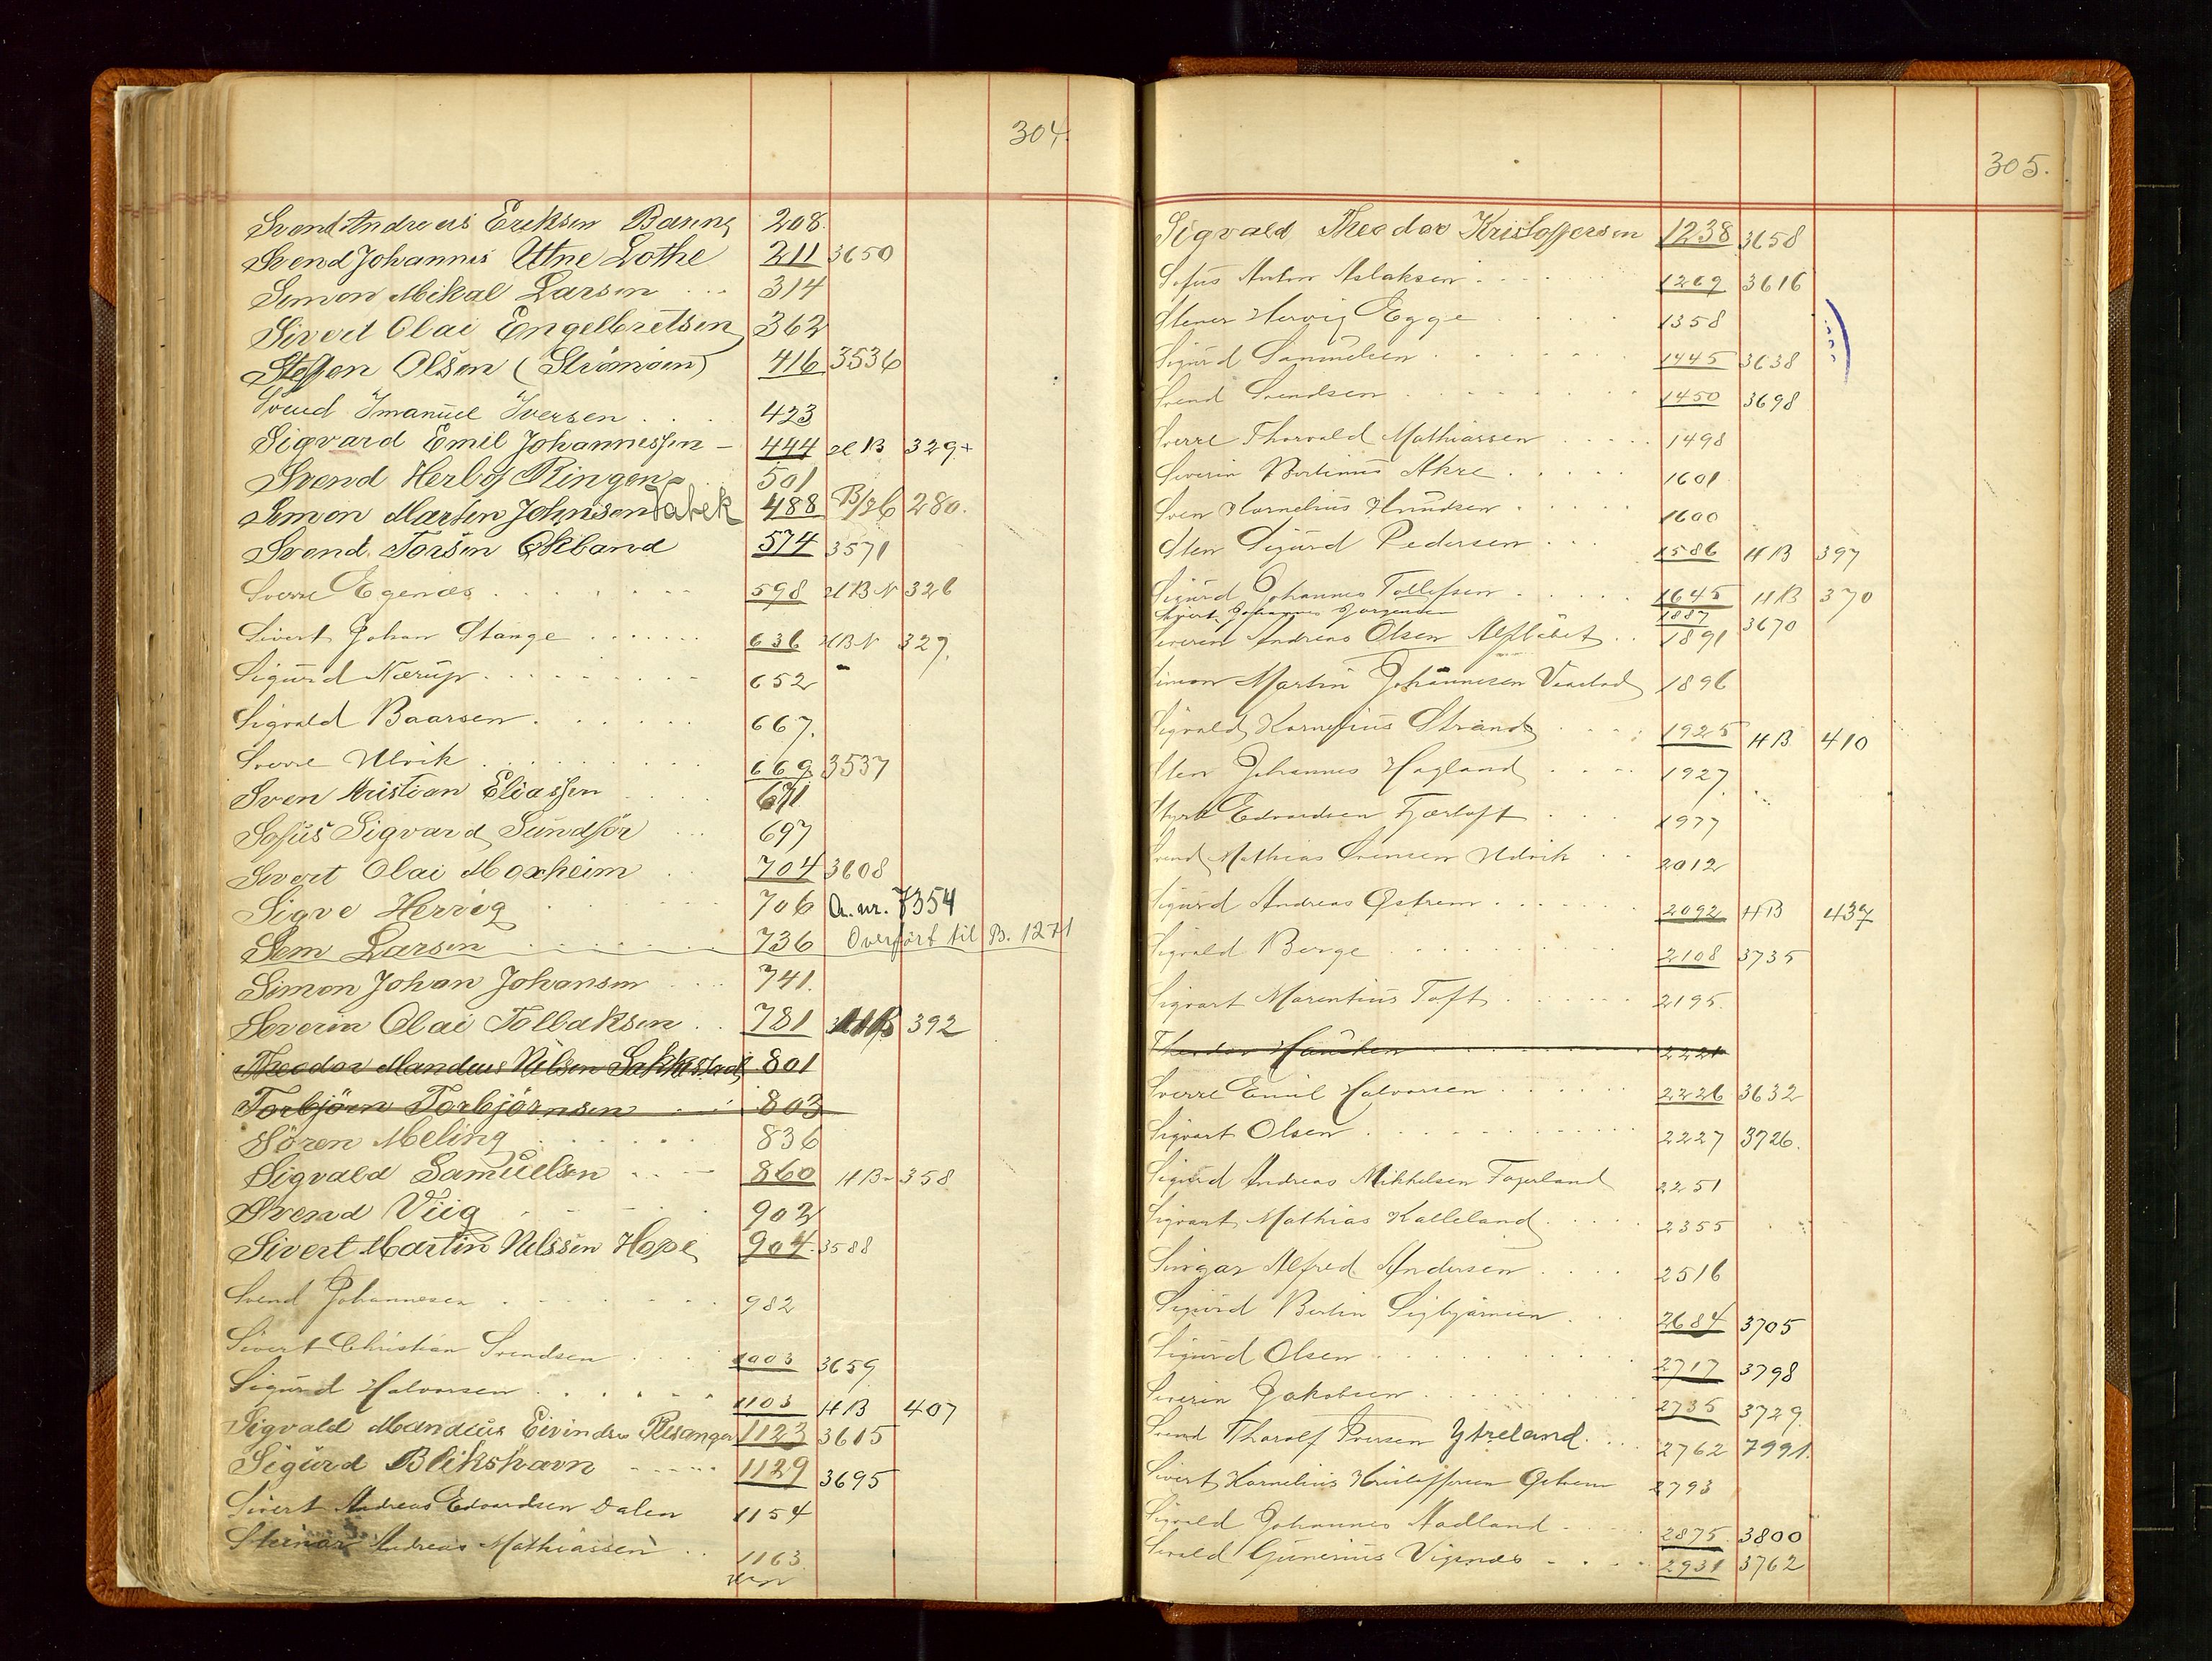 304.
Svend Andreas Eriksen Barena 208.
Svend Johannis Utne Lothe 211 3650
Simon Mikal Larsen 314
Sivert Olai Engelbretsen 362
Steffen Olsen (Strømøen) 416 3536
Svend Imanuel Iversen 423
Sigvard Emil Johannessen 444 HB 329+
Svend Herlof Ringen 501
Simon Martin Johnsen 488 B/26 280.
Svend Torsen Økland 574 3571
Sverre Egenæs 598 HB N 326
Sivert Johan Stange 636 HB N 327.
Sigurd Nærup 652
Sigvald Baarsen 667.
Sverre Ulvik 669 3537
Sven Kristian Eliassen 671
Sofus Sigvard Sundfør 697
Sivert Olai Moxheim 704 3608
Sigve Hervig 706 A. nr. 7354
Sem Larsen 736 Overført til B. 1271
Simon Johan Johansen 741.
Severin Olai Tollaksen 781 HB 392
Theodor Mandius Nilsen Sækkestad 801
Torbjørn Torbjørnsen 803
Søren Meling 836
Sigvald Samuelsen 860 HB 358
Svend Viig 902
Sivert Martin Nilssen Hope 904 3588
Svend Johannesen 982
Sivert Christian Svendsen 1003 3659
Sigurd Halvorsen 1103 HB 407
Sigvald Mandius Eivindsen Risanger 1123 3615
Sigurd Blikshavn 1129 3695
Sivert Andreas Edvardsen Dalen 1154
Steinar Andreas Mathiassen 1163
305.
Sigvald Theodor Kristoffersen 1238 3658
Sofus Anton Aslaksen 1269 3616
Stener Hervig Egge 1358
Sigurd Samuelsen 1445 3638
Svend Svendsen 1450 3698
Sverre Thorvald Mathiassen 1498
Severin Bertinus Akre 1601
Sven Kornelius Knudsen 1600
Sten Sigurd Pedersen 1586 HB 397
Sigurd Johannes Tollefsen 1645 HB 370
Sivert Johannes Jørgensen 1887 3670
Severin Andreas Olsen 1891
Simon Martin Johannesen 1896
Sigvald Kornelius Strand 1925 HB 410
Sten Johannes Hagland 1927.
Edvardsen 1977
Svend Mathias Svensen Ulvik 2012
Sigurd Andreas Østrem 2092 HB 437
Sigvald Berge 2108 3735
Sigvart Marentius Toft 2195.
Theodor Hausken 2221
Sverre Emil Halvorsen 2226 3632
Sigvart Olsen 2227 3726.
Sigurd Andreas Mikkelsen Fagerland 2251
Sigvart Mathias Kalleland 2355
Alfred Andersen 2516
Sigurd Bertin Sigbjørnsen 2684 3705
Sigurd Olsen 2717 3798
Severin Jakobsen 2735 3729.
Svend Tharalf Iversen Ytreland 2762 7991.
Sivert Kornelius Kristoffersen Østrem 2793
Sigvald Johannes Nadland 2875 3800
Sevald Gunerius Vigenes 2931 3762